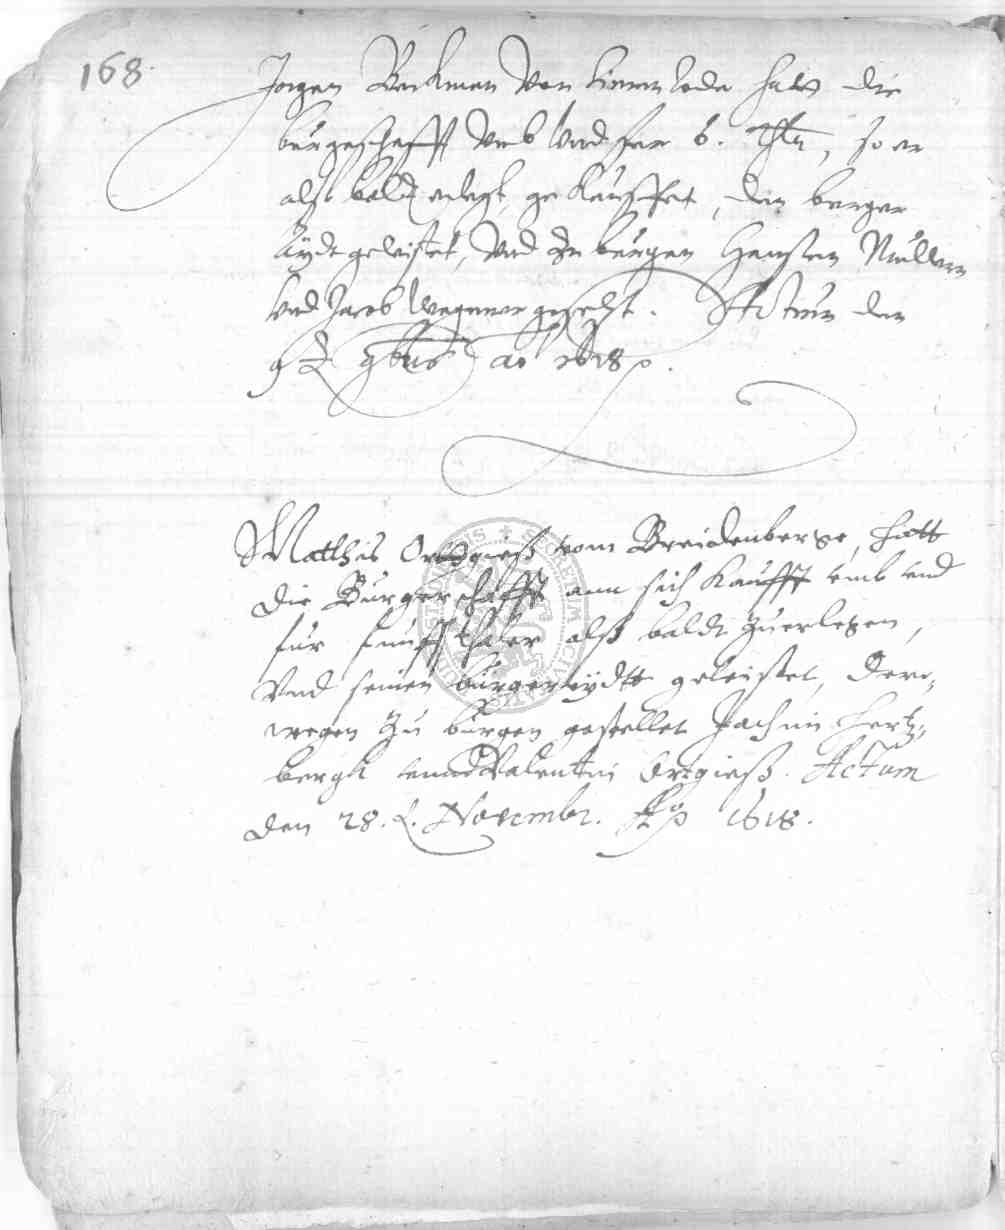 168.
Jorgen Beckman von himmelrode hatt die
burgeschafft vmb vnd for 6. Thlr, so er
alß baldt erlegt, gekauffet, den burger
Eydt geleistet, vnd zu burgen Hansen Mullern
vnd Jacob Wegener gesetzt. Actum den
9 t. 9bris ao 1618.
Matthis Ortgieß vom Breidenberge, hatt
die Burgerschafft ann sich kaufft vmb vnd
fur funff thaler alß baldt zuerlegen,
Vnd seinen burgereydtt geleistet, dero-
wegen zu burgen gestellet Jochim Hertz-
bergk vnnd Valentin Ortgieß. Actum
den 28. t. Novembr. Ao 1618.
SECRETUM CIVITATIS